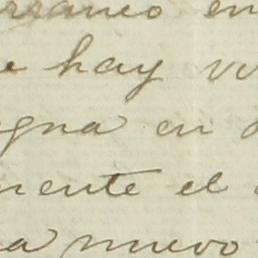 rraneo en
e hay vi
gna en
mente el
a nuevo